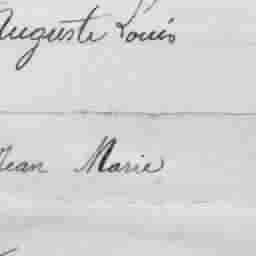 Auguste Louis
Jean Marie